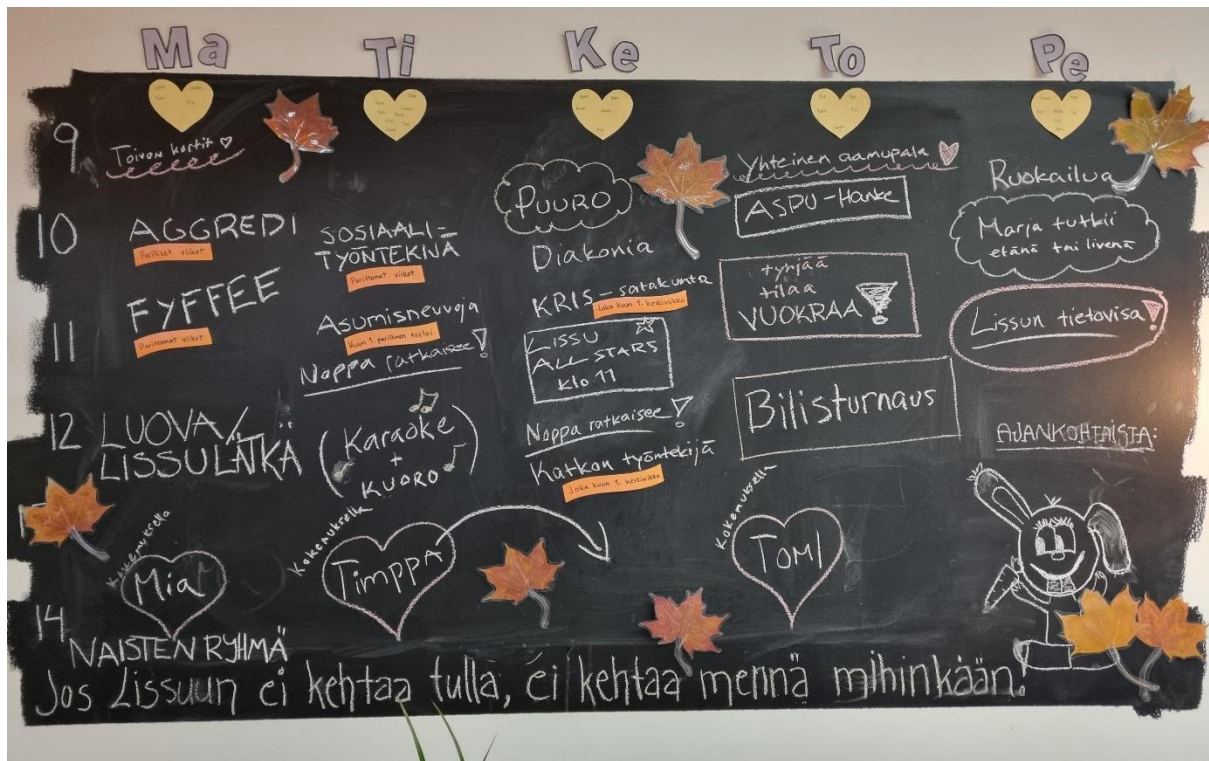 Ma
Ti
Ke
To
Pe
9
Toivon kortit
10
AGGREDI
Parilliset viikot
FYFFEE
Parittomat viikot
11
12
LUOVA/
LISSULÄTKÄ
Kokemuksella
Mia
14
NAISTEN RYHMÄ
SOSIAALI-
TYÖNTEKIJÄ
Parittomat viikot
Asumisneuvoja
Kuun 1. parillinen tiistai
Noppa ratkaisee!
(Karaoke
+
KUORO)
Kokemuksella
Timppa
PUURO
Diakonia
KRIS-satakunta
Joka kuun 1. keskiviikko
LISSU
ALL STARS
klo 11
Noppa ratkaisee!
Katkon työntekijä
Joka kuun 1. keskiviikko
Yhteinen aamupala
ASPU-Hanke
tyhjää
tilaa
VUOKRAA!
Bilisturnaus
Kokemuksella
TOMI
Ruokailua
Marja tutkii
etänä tai livenä
Lissun tietovisa!
AJANKOHTAISTA:
Jos Lissuun ei kehtaa tulla, ei kehtaa mennä mihinkään!